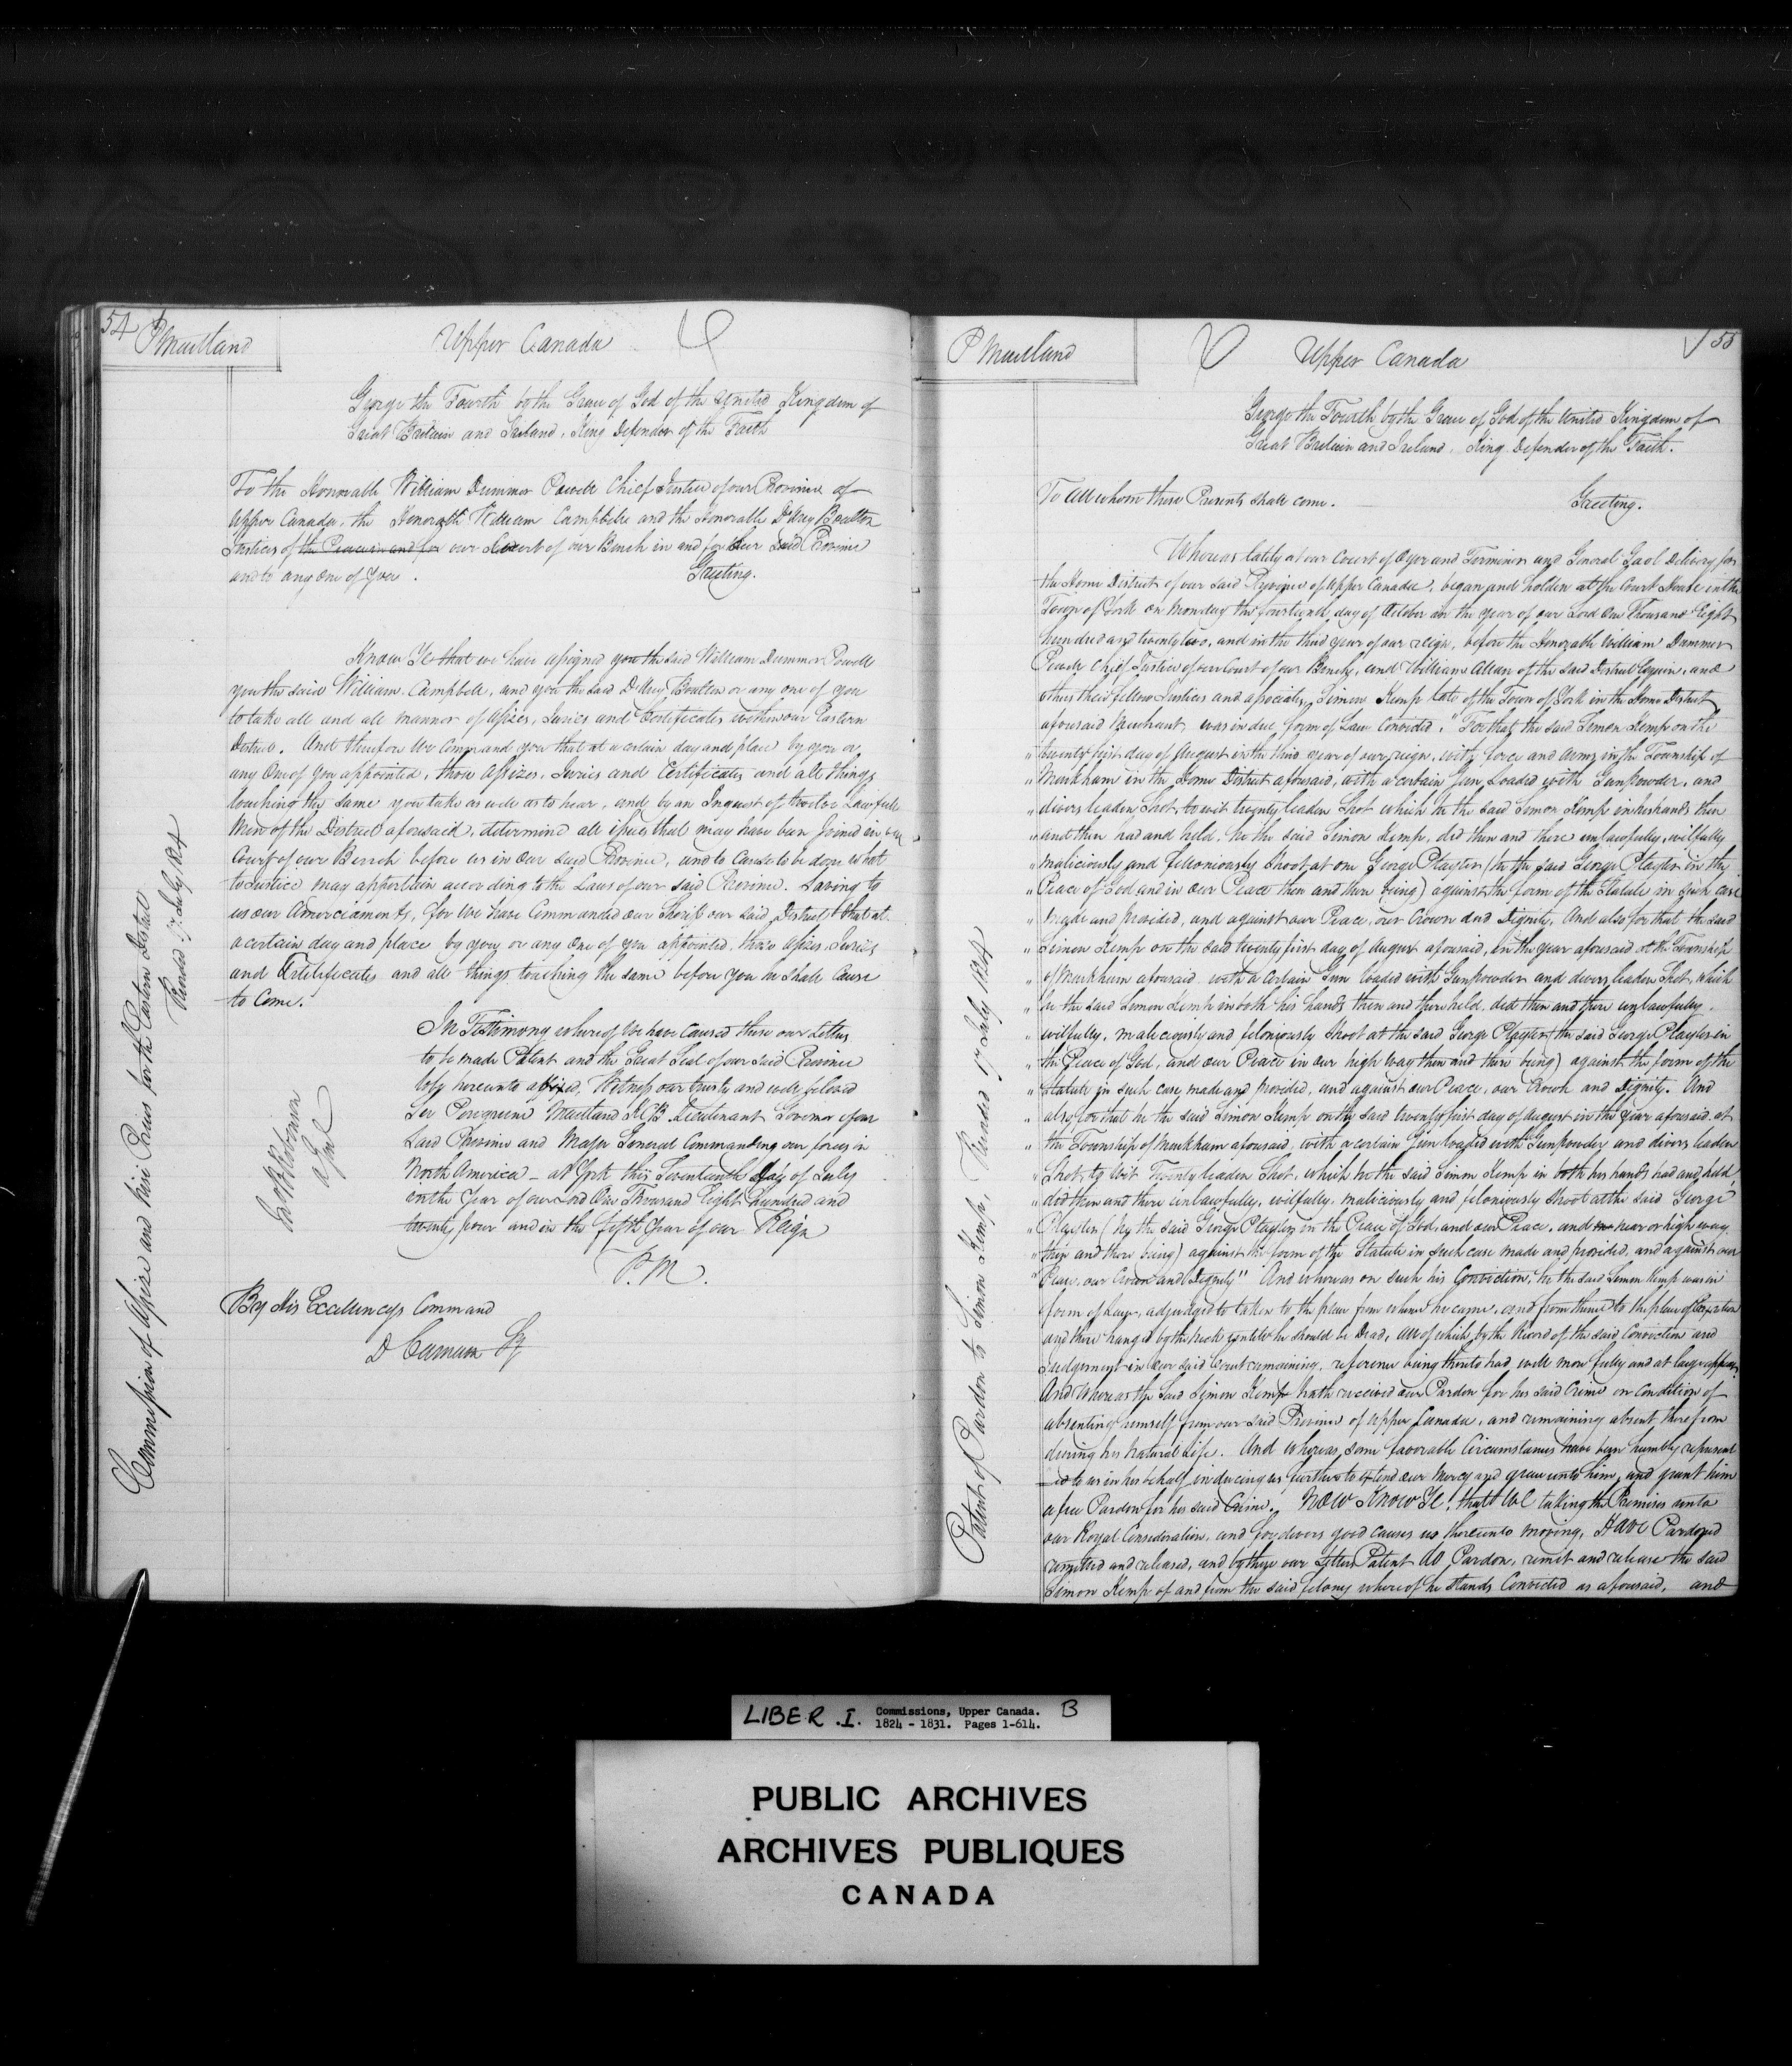 54
P Maitland
Upper Canada
George the Fourth by the Grace of God of the United Kingdom of
Great Britain and Ireland, King Defender of the Faith
To the Honorable William Dummer Powell Chief Justice of our Province of
Upper Canada, the Honorable William Campbell and the Honorable D'Arcy Boulton
Justices of the Peace in and for our Court of our Bench in and for our said Province
and to any one of you.
Greeting.
Know Ye that we have assigned you the said William Dummer Powell
you the said William Campbell, and you the said D'Arcy Boulton or any one of you
to take all and all manner of Assizes, Juries and Certificates within our Eastern
District. And therefore We Command you that at a certain day and place by you or
any One of you appointed, those Assizes, Juries and Certificates and all things
touching the same you take as well as to hear, and by an Inquest of twelve Lawfull
Men of the District aforesaid, determine all issues that may have been Joined in our
Court of our Bench before us in Our said Province, and to Cause to be done what
to Justice may appertain according to the Laws of our said Province. Saving to
us our Amerciaments, for We have Commanded our Sheriff our said District that at
a certain day and place by you or any One of you appointed, those Assizes, Juries
and Certificates and all things touching the same before you he shall Cause
to Come.
In Testimony whereof We have Caused these our Letters
to be made Patent and the Great Seal of our said Province
to be hereunto affixed, Witness our trusty and well beloved
Sir Peregrine Maitland K.C.B. Lieutenant Governor of our
Said Province and Major General Commanding our forces in
North America - at York this Seventeenth day of July
in the Year of our Lord One Thousand Eight hundred and
twenty four and in the fifth Year of our Reign
P. M.
By His Excellencys Command
D Cameron Sy
Commission of Assize and Nisi Prius for the Eastern District
Record 17 July 1824
Jno B Robinson
a Genl
P Maitland
Upper Canada
55
George the Fourth by the Grace of God of the United Kingdom of
Great Britain and Ireland, King Defender of the Faith.
To All whom these Presents shall come.
Greeting.
Whereas lately at our Court of Oyer and Terminer and General Gaol Delivery for
the Home District of our said Province of Upper Canada, began and holden at the Court House in the
Town of York on Monday the fourteenth day of October in the year of our Lord One Thousand Eight
hundred and twenty two, and in the third year of our reign, before the Honorable William Dummer
Powell Chief Justice of our Court of our Bench, and William Allan of the said District Esquire, and
others their fellow Justices and associates, Simon Kemp late of the Town of York in the Home District
aforesaid Merchant, was in due form of Law Convicted, "For that the said Simon Kemp on the
" twenty first day of August in the third year of our reign, with force and arms in the Township of
" Markham in the Home District aforesaid, with a certain Gun Loaded with Gunpowder, and
" divers leaden Shot, to wit twenty leaden Shot which he the said Simon Kemp in his hands then
" and there had and held, he the said Simon Kemp, did then and there unlawfully, wilfully
" maliciously and feloniously Shoot at one George Playter (he the said George Playter in the
" Peace of God and in Our Peace then and there being) against the form of the Statute in such case
" made and provided, and against our Peace, our Crown and Dignity, And also for that the said
" Simon Kemp on the said twenty first day of August aforesaid, in the year aforesaid at the Township
" of Markham aforesaid with a Certain Gun loaded with Gunpowder and divers leaden Shot, which
" he the said Simon Kemp in both his hands then and there held, did then and there unlawfully
" wilfully, maliciously and feloniously Shoot at the said George Playter (the said George Playter in
" the Peace of God, and our Peace in our high way then and there being) against the form of the
" Statute in such case made and provided, and against our Peace, our Crown and Dignity. And
" also for that he the said Simon Kemp on the said twenty first day of August in the Year aforesaid at
" the Township of Markham aforesaid, with a certain Gun loaded with Gunpowder and divers leaden
" Shot, to wit Twenty leaden Shot, which he the said Simon Kemp in both his hands had and held
" did then and there unlawfully, wilfully, maliciously and feloniously Shoot at the said George
" Playter (he the said George Playter in the Peace of God, and our Peace, and near or high way
" then and there being) against the form of the Statute in such case made and provided, and against our
" Peace, our Crown and Dignity" And whereas on such his Conviction, he the said Simon Kemp was in
form of Law, adjudged to taken to the place from whence he came, and from thence to the place of Execution
and there hanged by the Neck until he should be Dead, all of which by the Record of the said Conviction and
Judgement in Our said Court remaining, reference being thereto had will more fully and at large appear,
And Whereas the Said Simon Kemp hath received our Pardon for his said Crime on Condition of
absenting himself from our said Province of Upper Canada, and remaining absent therefrom
during his Natural life. And Whereas some favorable Circumstances have been humbly represent
=ed to us in his behalf inducing us further to extend our Mercy and grace unto him, and grant him
a free Pardon for his said Crime. NOW Know Ye, that We taking the Premises unto
our Royal Consideration, and for divers good Causes us thereunto moving, HAVE Pardoned
remitted and released, and by these our Letters Patent do Pardon, remit and release the said
Simon Kemp of and from the said felony whereof he stands Convicted as aforesaid, and
Patent of Pardon to Simon Kemp, Recorded 17 July 1824
LIBER .I. Commissions, Upper Canada. B
1824 - 1831. Pages 1-614.
PUBLIC ARCHIVES
ARCHIVES PUBLIQUES
CANADA